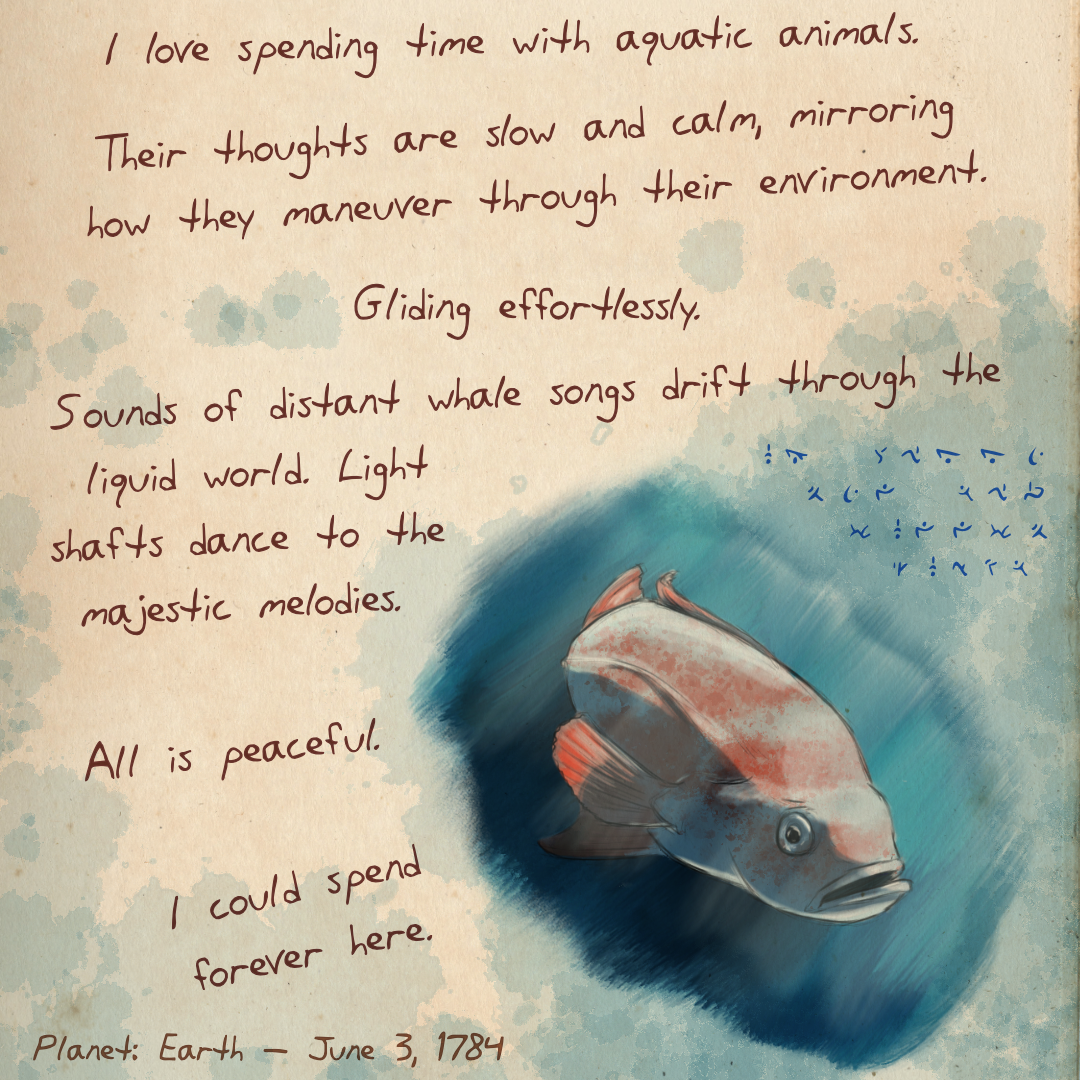 I love spending time with aquatic animals.
Their thoughts are slow and calm, mirroring
how they maneuver through their environment.
Gliding effortlessly.
Sounds of distant whale songs drift through the
liquid world. Light
shafts dance to the
majestic melodies.
All is peaceful.
I could spend
forever here.
Planet: Earth – June 3, 1784